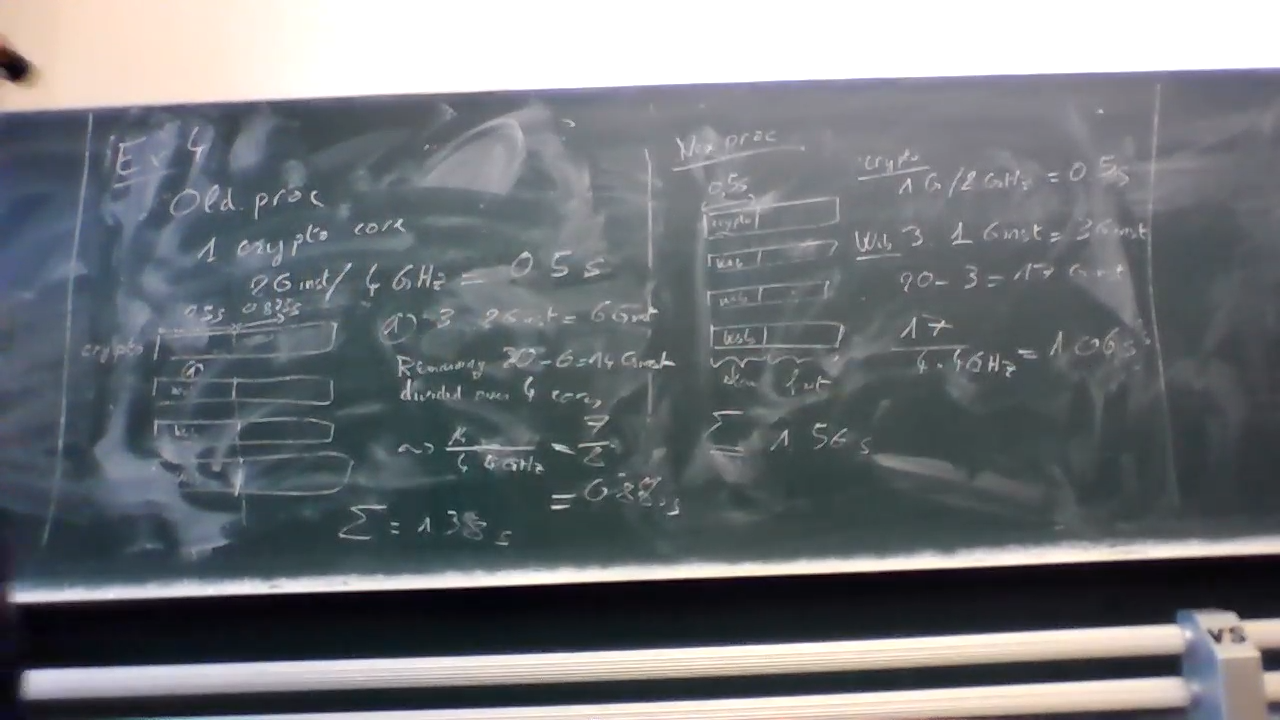 Ex 4
Old proc
1 crypto core
2Ginst/4GHz = 0.5s
0.5s 0.875s
crypto
1) 3 · 2Ginst = 6Ginst
Remaining 20-6=14Ginst
divided over 4 cores
= 7/2
= 0.88s
Σ = 1.38s
New proc
0.5s
crypto
web
web
web
slow fast
crypto
1G/2GHz = 0.5s
Web 3 · 1Ginst = 3Ginst
20-3=17Ginst
17/4·4GHz = 1.06s
Σ 1.56s
VS